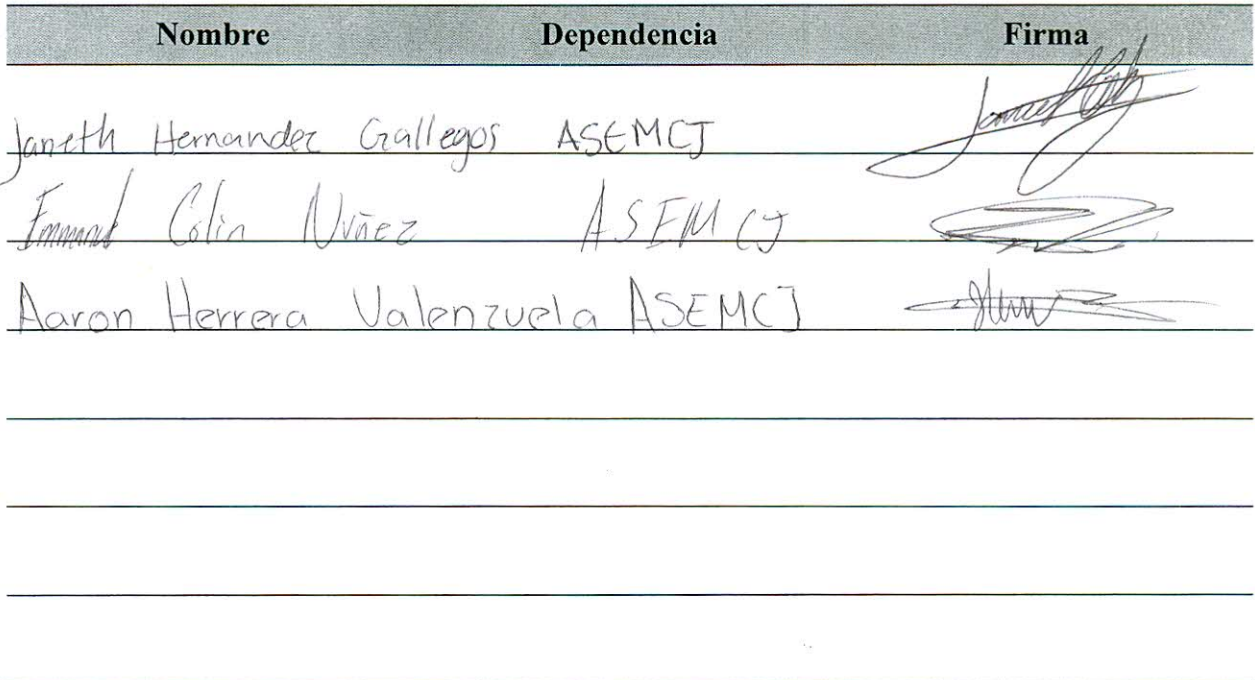 Nombre Dependencia Firma
Janeth Hernandez Gallegos ASEMCJ
Colin Nuñez ASEMCJ
Aaron Herrera Valenzuela ASEMCJ